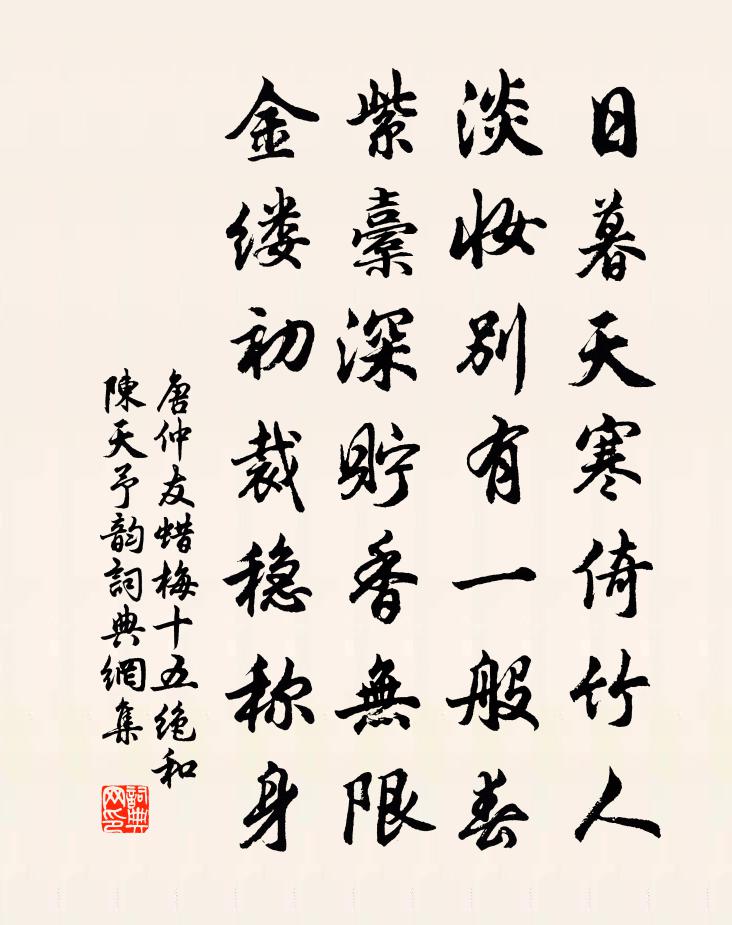 日暮天寒倚竹人
淡妆别有一般春
紫囊深貯香無限
金缕初裁稳称身
唐仲友蜡梅十五绝和
陳天予韵詞典網集
詞典
网印